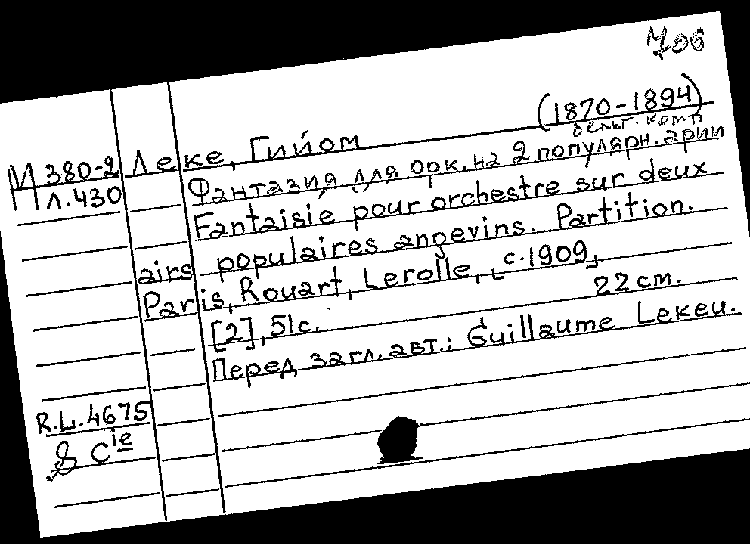 706
(1870-1894)
М 380-2 Леке, Гийом бельг. комп
П л.430 Фантазия для орк. на 2 популярн. арии
Fantaisie pour orchestre sur deux
airs populaires angevins. Partition.
Paris, Rouart, Lerolle, [c.1909]
[2], 51с. 22 cm.
Перед загл. авт.: Guillaume Lekeu.
R.L.4675
& Cie